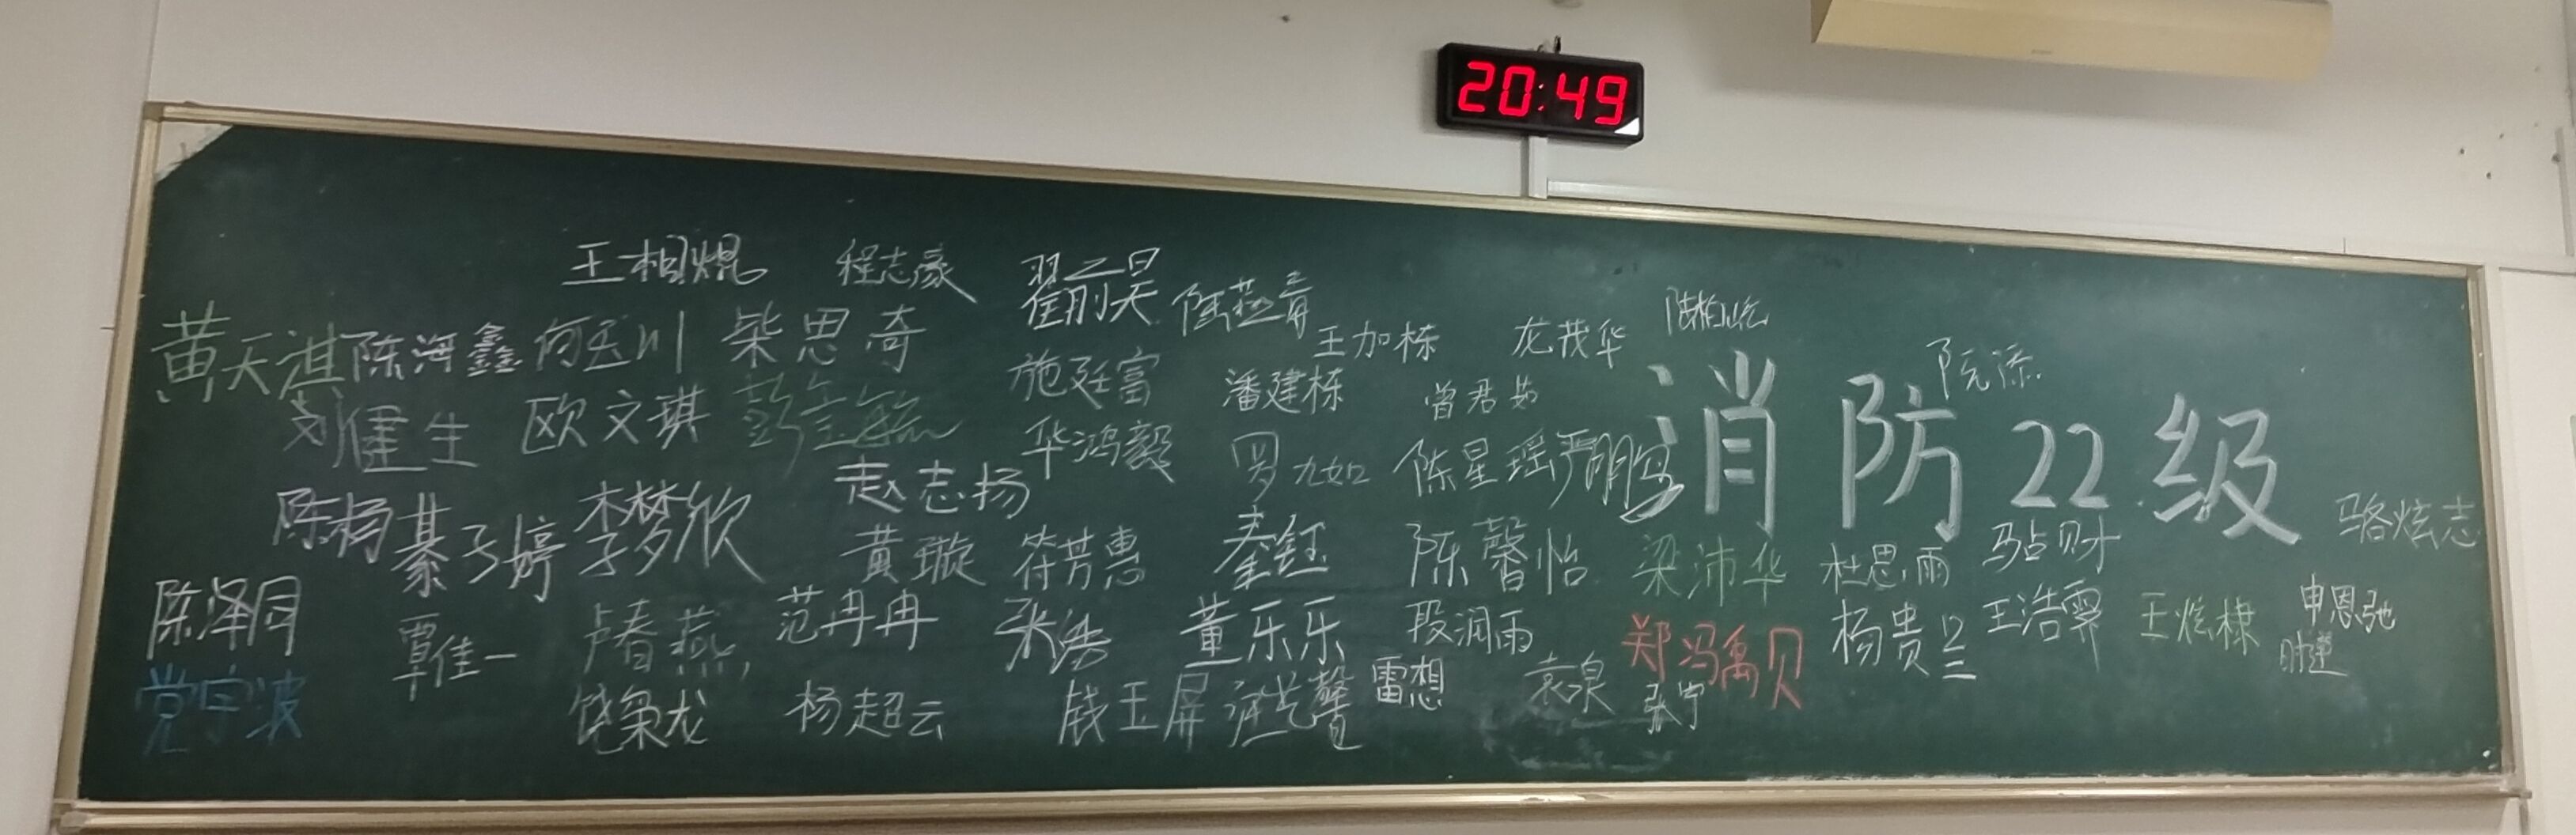 20:49
王相焜 程志豪 翟刖昊
陆燕青 王加栋 龙茂华 陆柏屹
黄天淇 陈海鑫 何玉川 柴思奇 施廷富 潘建栋 曾君茹 阮添
刘健生 欧文琪 彭金毓 华鸿毅 罗九如 陈星瑶 严朋鸟
消防22级
陈杨 綦子婷 李梦欣 赵志扬 骆炫志
黄璇 符芳惠 秦钰 陈馨怡 梁沛华 杜思雨 马占财
陈泽同 覃佳一 卢春燕 范冉冉 张浩 董乐乐 段润雨 郑冯禹贝 杨贵兰 王浩霁 王炫棣 申恩弛
党宇波 饶枭龙 杨超云 钱玉屏 雷想 袁泉 张宁